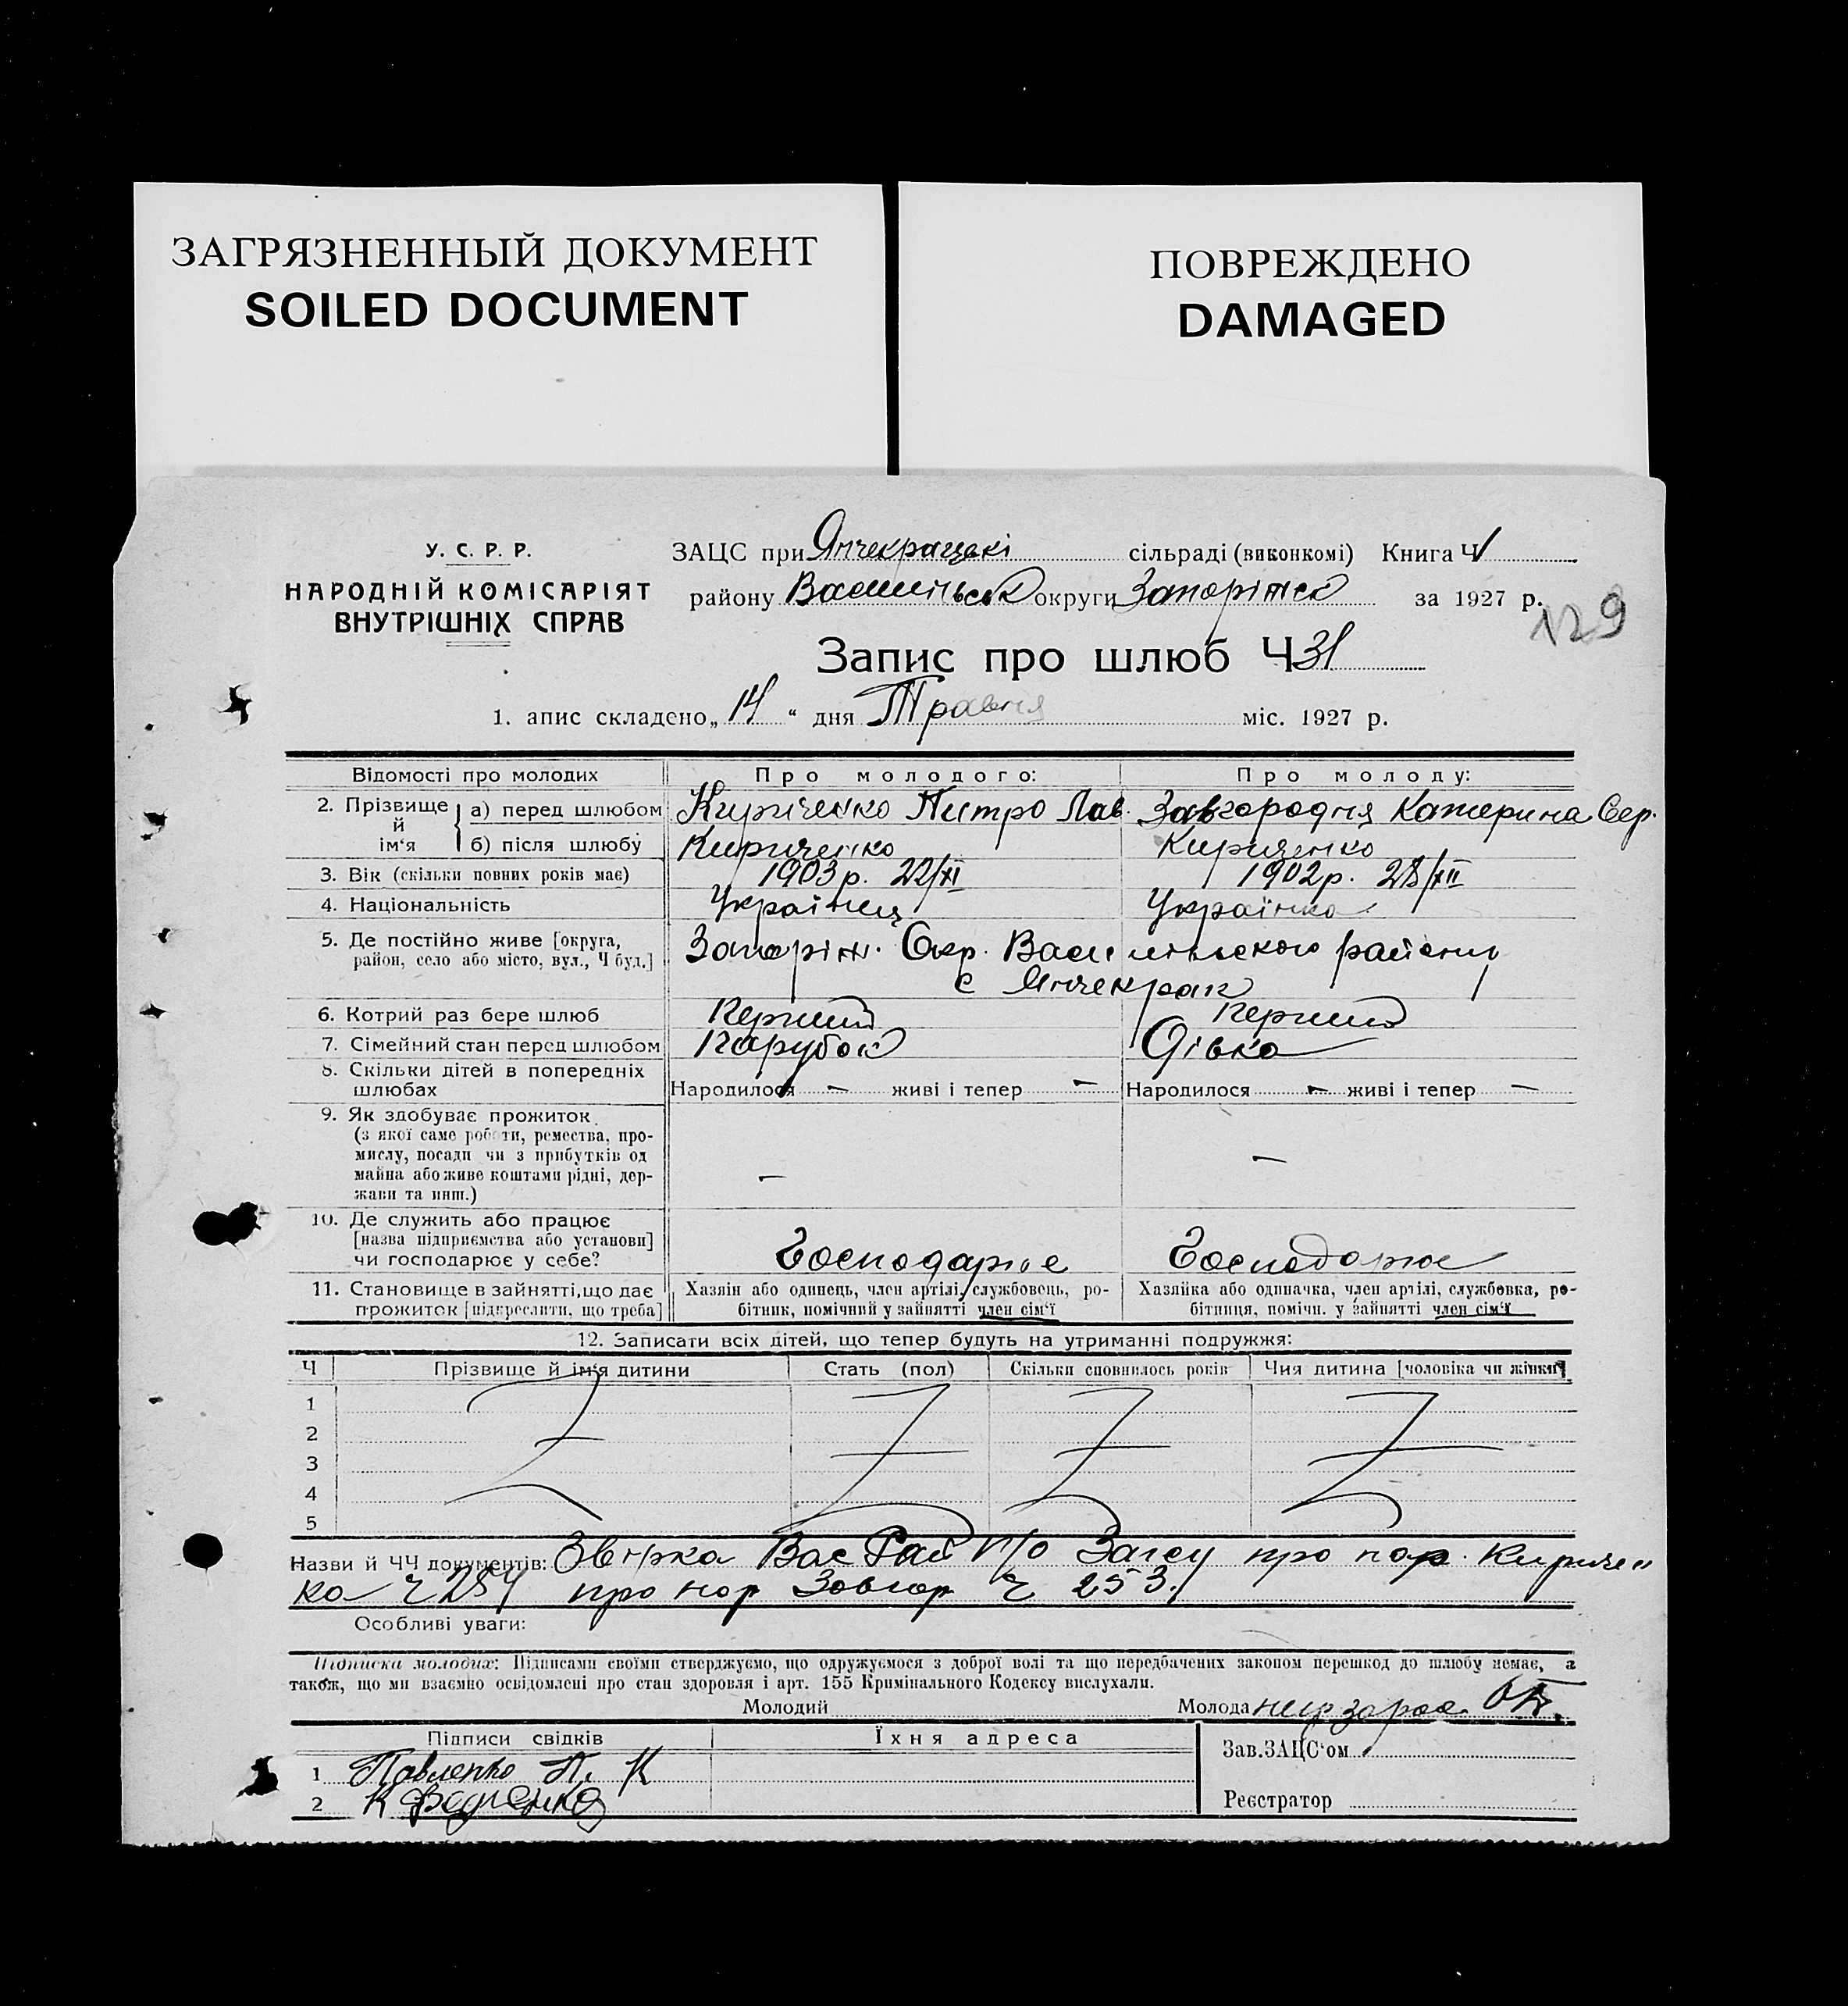 ЗАГРЯЗНЕННЫЙ ДОКУМЕНТ
SOILED DOCUMENT
ПОВРЕЖДЕНО
DAMAGED
У. С. Р. Р.
НАРОДНІЙ КОМІСАРІЯТ
ВНУТРІШНІХ СПРАВ
ЗАЦС при Янчекрацькі сільраді (виконкомі) Книга Ч 1
району Васильівськ округи Запоріжск за 1927 р.
129
Запис про шлюб Ч 31
1. апис складено „ 14 “ дня Травня міс. 1927 р.
Відомості про молодих Про молодого: Про молоду:
2. Прізвище й ім'я а) перед шлюбом Кириченко Питро Лав. Завгородня Катерина Сер.
б) після шлюбу Кириченко Кириченко
3. Вік (скільки повних років має) 1903 р. 22/XI 1902 р. 28/XII
4. Національність Українець Українка
5. Де постійно живе [округа, Запоріж. Окр. Васильівського району
район, село або місто, вул., Ч буд.] с Янчекрак
6. Котрий раз бере шлюб Перший Перший
7. Сімейний стан перед шлюбом Парубок Дівка
8. Скільки дітей в попередніх
шлюбах Народилося — живі і тепер — Народилося — живі і тепер —
9. Як здобуває прожиток
(з якої саме роботи, ремества, про-
мислу, посади чи з прибутків од
майна або живе коштами рідні, дер- — —
жави та инш.)
10. Де служить або працює
[назва підприємства або установи]
чи господарює у себе? Господарює Господарює
11. Становище в зайнятті, що дає Хазяїн або одинець, член артілі, службовець, ро- Хазяйка або одиначка, член артілі, службовка, ро-
прожиток [підкреслити, що треба] бітник, помічний у зайнятті член сім'ї бітниця, помічн. у зайнятті член сім'ї
12. Записати всіх дітей, що тепер будуть на утриманні подружжя:
Ч Прізвище й ім'я дитини Стать (пол) Скільки сповнилось років Чия дитина [чоловіка чи жінки]
1
2
3
4
5
Назви й ЧЧ документів: Звірка Вас Рай Загсу про нар. Киричен
ко ч 254 про нар Завгор ч 253.
Особливі уваги:
Підписка молодих: Підписами своїми стверджуємо, що одружуємося з доброї волі та що передбачених законом перешкод до шлюбу немає, а
також, що ми взаємно освідомлені про стан здоровля і арт. 155 Кримінального Кодексу вислухали.
Молодий Молода
Підписи свідків Їхня адреса
Зав.ЗАЦС'ом
1 Павленко П. К
2 К
Реєстратор